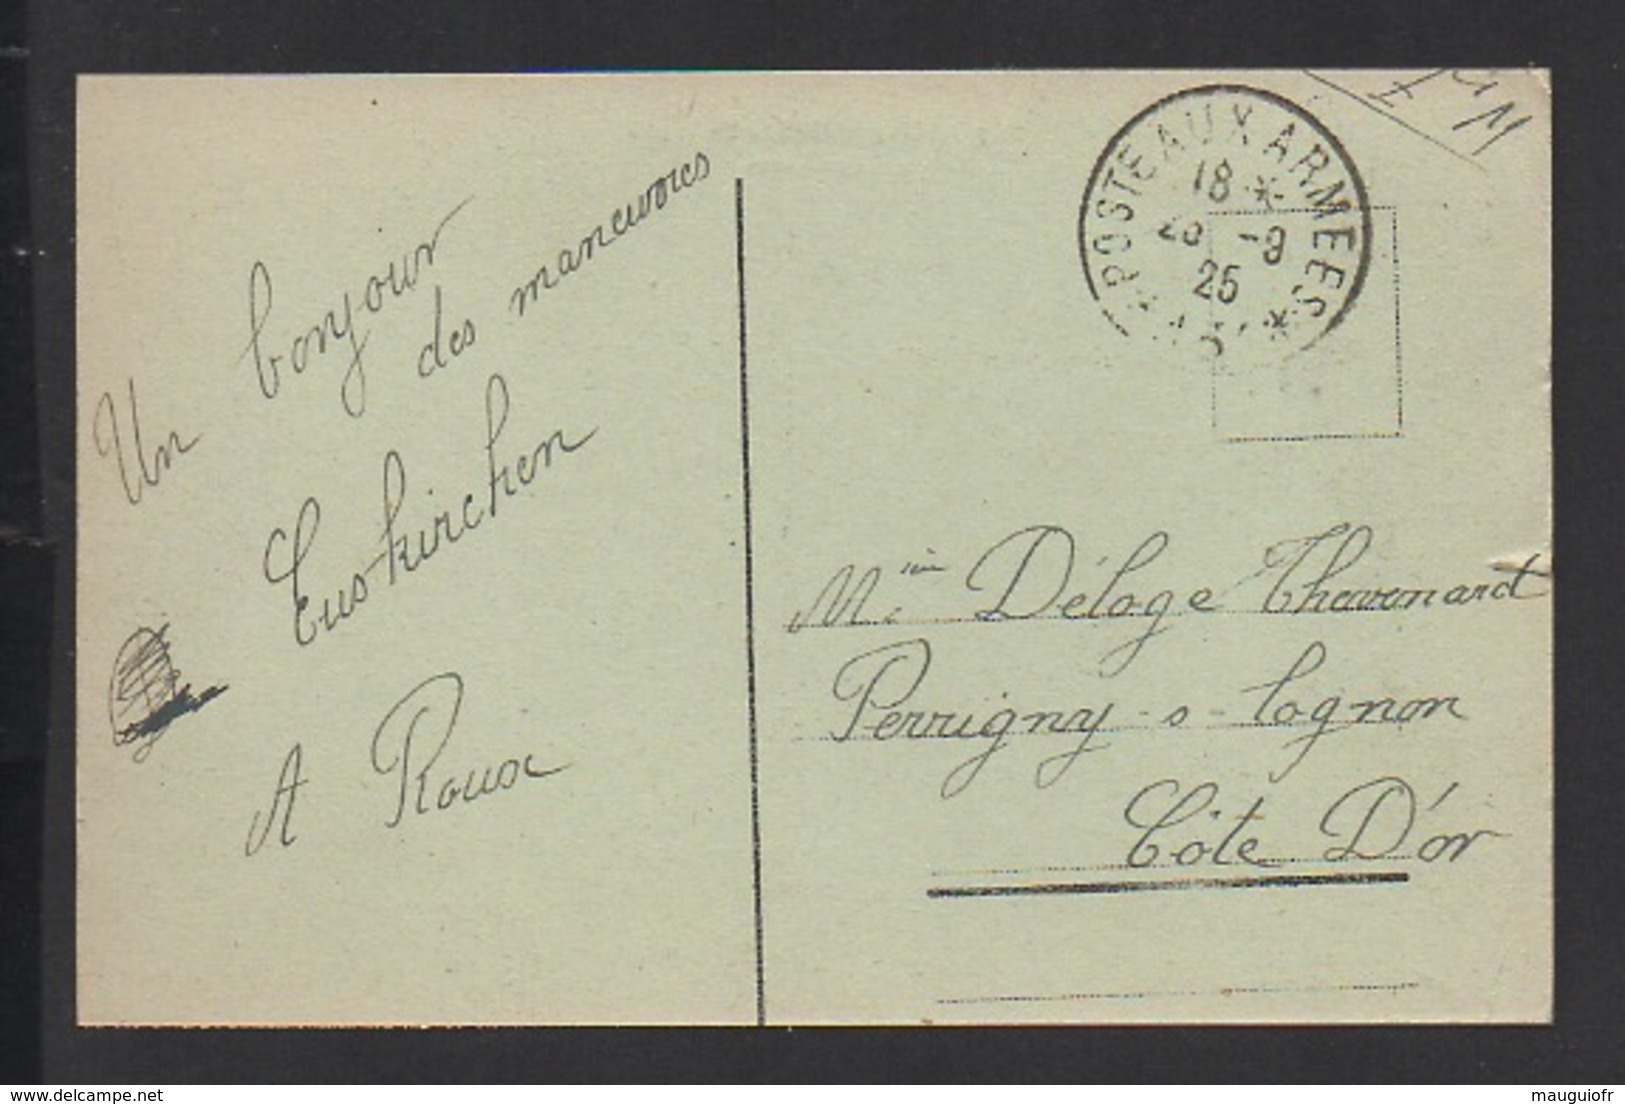 Un bonjour
des manœuvres
Euskirchen
A Roux
F M
POSTE AUX ARMEES
18 *
-9
25
Déloge Thevenard
Perrigny-s-lognon
Côte D'or
delcampe.net
mauguiofr